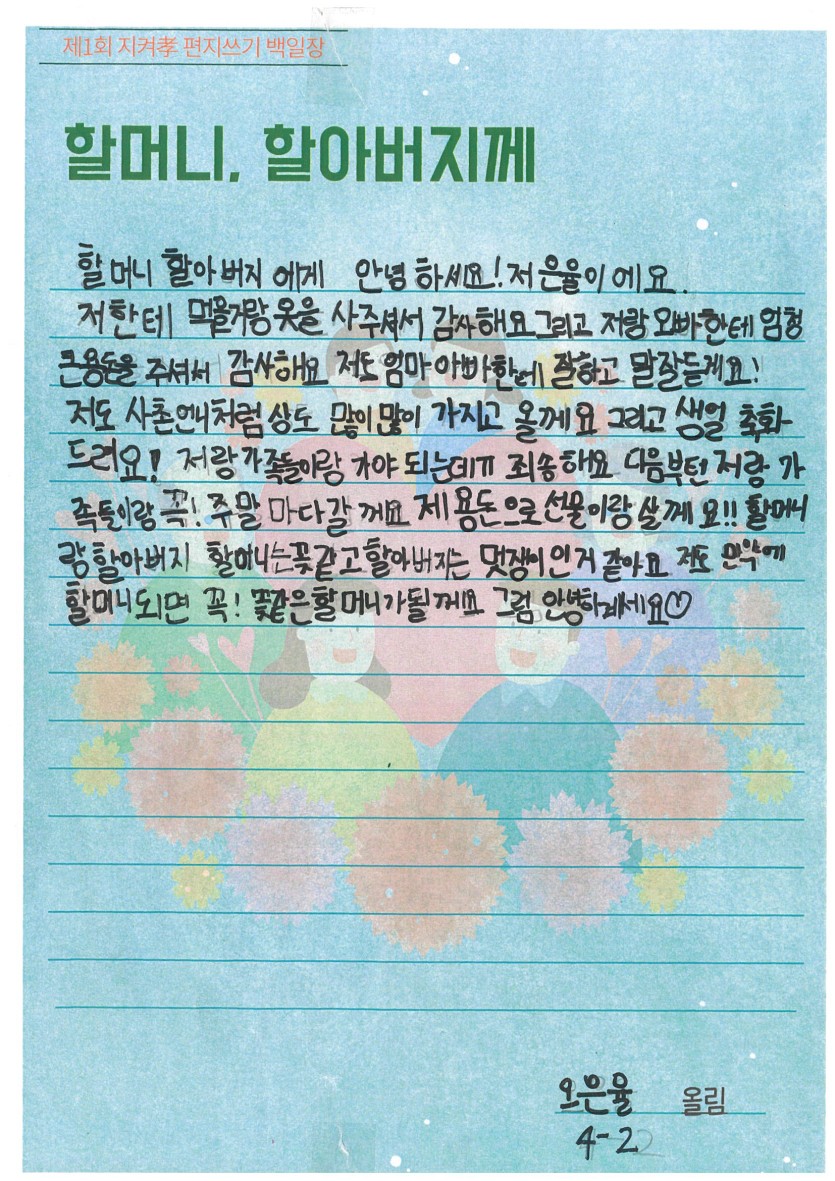 제1회 지켜孝 편지쓰기 백일장
할머니, 할아버지께
할머니 할아버지 에게 안녕 하세요! 저 은율이 에요.
저한테 먹을거랑 옷을 사주셔서 감사해요 그리고 저랑 오빠한테 엄청
큰용돈을 주셔서 감사해요 저도 엄마 아빠한테 잘하고 말잘들게요!
저도 사촌언니처럼 상도 많이많이 가지고 올께요 그리고 생일 축화
드려요! 저랑가족들이랑 가야 되는데ㅠ 죄송해요 다음부턴 저랑 가
족들이랑 꼭! 주말 마다갈 께요 제 용돈으로선물이랑 살께 요!! 할머니
랑할아버지 할머니는꽃같고할아버지는 멋쟁이인거 같아요 저도 만약에
할머니되면 꼭! 꽃같은할머니가될께요 그럼 안녕하계세요♡
오은율 올림
4-2